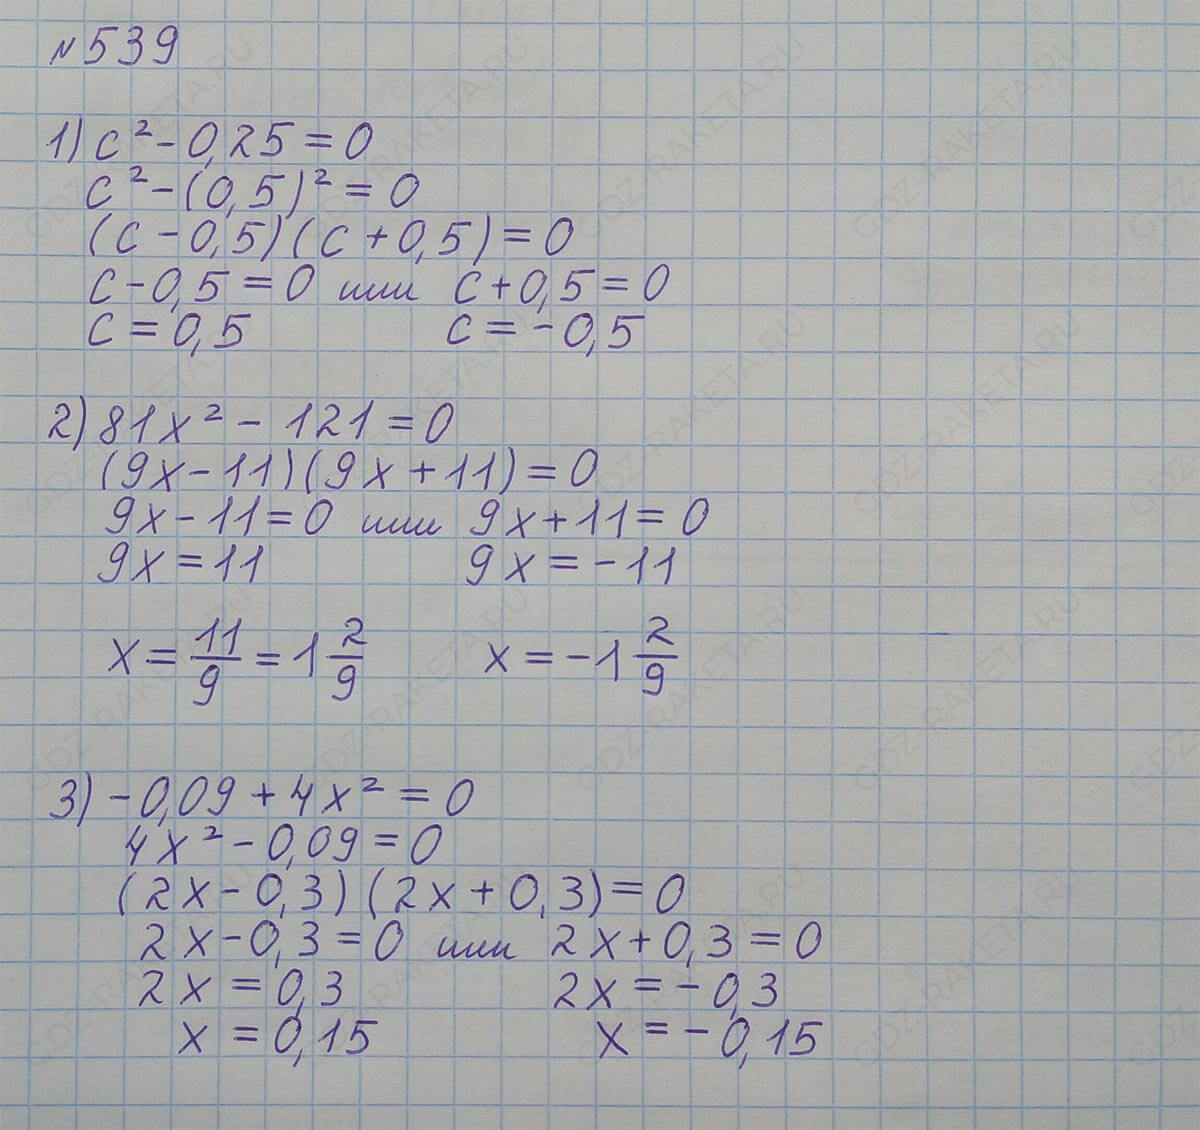 №539
1) c² - 0,25 = 0
c² - (0,5)² = 0
(c - 0,5)(c + 0,5) = 0
c - 0,5 = 0 или c + 0,5 = 0
c = 0,5 c = -0,5
2) 81x² - 121 = 0
(9x - 11)(9x + 11) = 0
9x - 11 = 0 или 9x + 11 = 0
9x = 11 9x = -11
x = 11/9 = 1 2/9 x = -1 2/9
3) -0,09 + 4x² = 0
4x² - 0,09 = 0
(2x - 0,3)(2x + 0,3) = 0
2x - 0,3 = 0 или 2x + 0,3 = 0
2x = 0,3 2x = -0,3
x = 0,15 x = -0,15
GDZ-RAKETA.RU